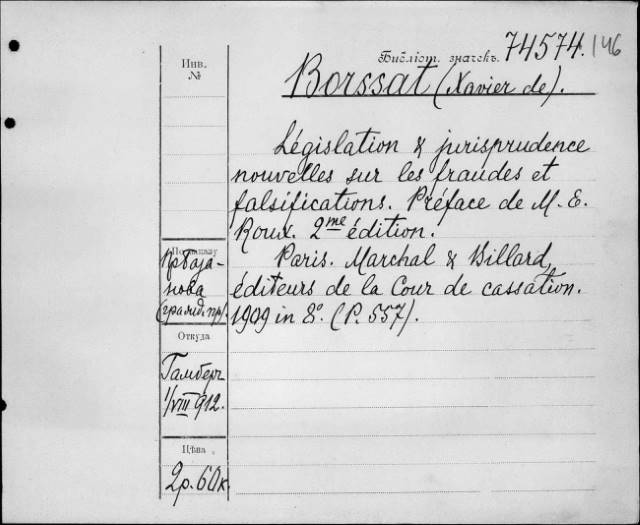 Библіот. значекъ. 74574.
146
Инв.
№
Borssat (Xavier de).
Législation & jurisprudence
nouvelles sur les fraudes et
falsifications. Préface de M. E.
Roux. 2me édition.
Paris. Marchal & Billard,
éditeurs de la Cour de cassation.
1909 in 8°. (P. 557).
По заказу
(гражд. пр).
Откуда
Гамберъ
1/VIII 912.
Цѣна
2р. 60к